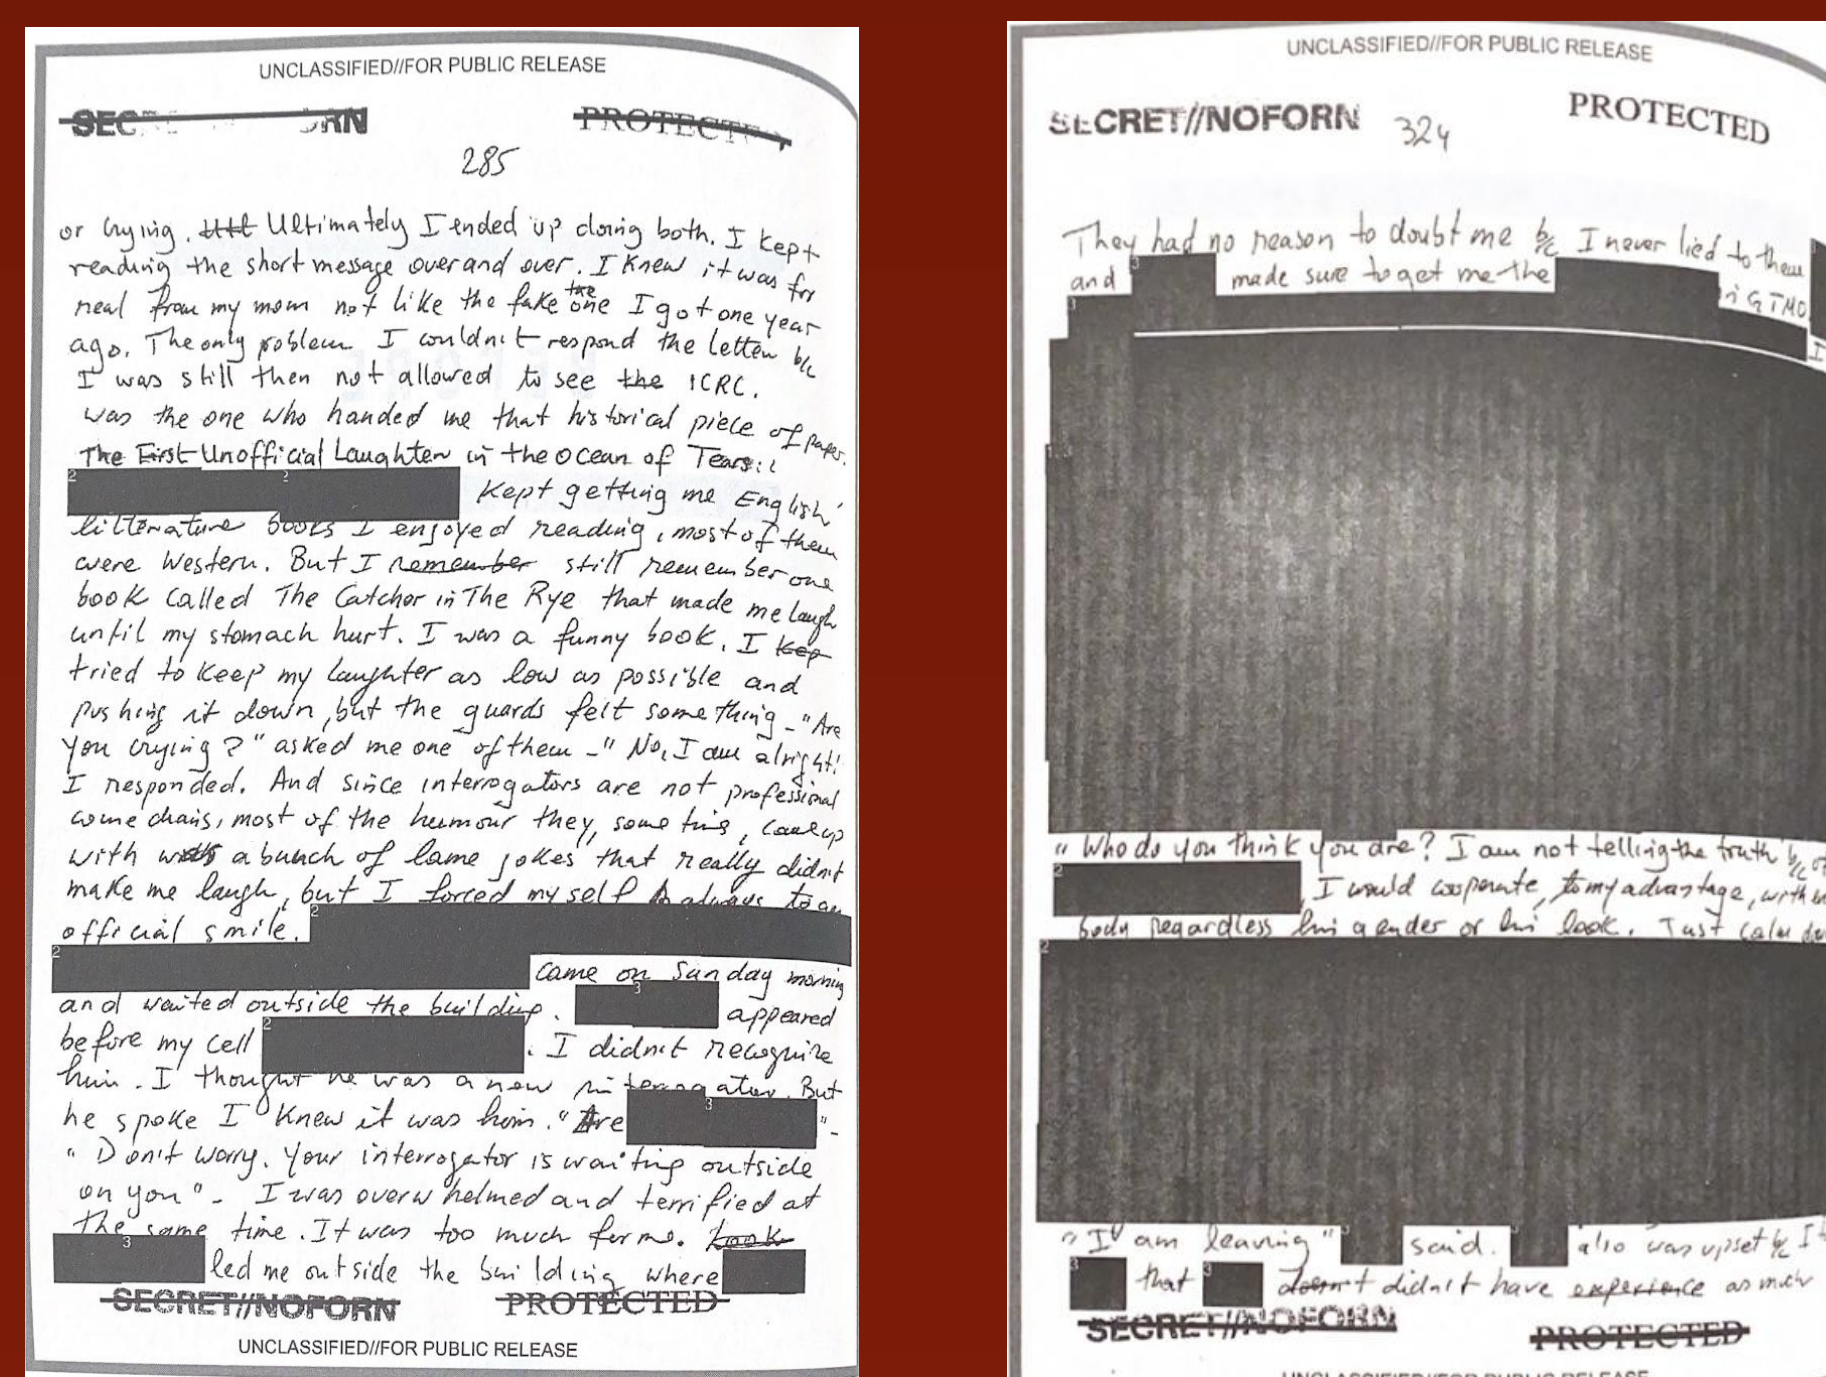 UNCLASSIFIED//FOR PUBLIC RELEASE
PROTECTED
285
or crying. Ultimately I ended up doing both. I kept
reading the short message over and over. I knew it was for
real from my mom not like the fake the one I got one year
ago. The only problem I couldn't respond the letter b/c
I was still then not allowed to see the ICRC.
was the one who handed me that historical piece of paper.
The First Unofficial Laughter in the ocean of Tears:
kept getting me English
litterature books I enjoyed reading, most of them
were Western. But I remember still remember one
book called The Catcher in The Rye that made me laugh
until my stomach hurt. I was a funny book. I kep
tried to keep my laughter as low as possible and
pushing it down, but the guards felt something - "Are
you crying?" asked me one of them - "No, I am alright!
I responded. And since interrogators are not professional
comedians, most of the humour they, some time, came up
with a bunch of lame jokes that really didn't
make me laugh, but I forced my self always to an
official smile.
came on Sunday morning
and waited outside the building. appeared
before my cell . I didn't recognize
him. I thought he was a new interrogator. But
he spoke I knew it was him. "Are "-
"Don't worry. Your interrogator is waiting outside
on you" - I was overwhelmed and terrified at
the same time. It was too much for me. took
led me outside the building where
SECRET//NOFORN PROTECTED
UNCLASSIFIED//FOR PUBLIC RELEASE
UNCLASSIFIED//FOR PUBLIC RELEASE
SECRET//NOFORN 324 PROTECTED
They had no reason to doubt me b/c I never lied to them
and made sure to get me the
in GTMO
I
"Who do you think you are? I am not telling the truth b/c of
, I would cooperate, to my advantage, with
body regardless his gender or his look. Just calm
"I am leaving" said. also was upset b/c
that doesn't didn't have experience as much
SECRET//NOFORN PROTECTED
UNCLASSIFIED//FOR PUBLIC RELEASE